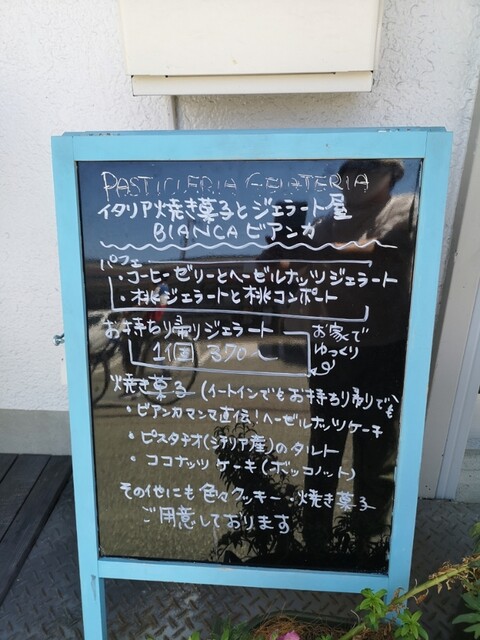 PASTICCERIA GELATERIA
イタリア焼き菓子とジェラート屋
BIANCA ビアンカ
パフェ
・コーヒーゼリーとヘーゼルナッツジェラート
・桃ジェラートと桃コンポート
お持ち帰りジェラート
1個 370〜
お家で
ゆっくり
焼き菓子 (イートインでもお持ち帰りでも
・ビアンカマンマ直伝!ヘーゼルナッツケーキ
・ピスタチオ(シチリア産)のタルト
・ココナッツケーキ(ボッコノット)
その他にも色々クッキー・焼き菓子
ご用意しております